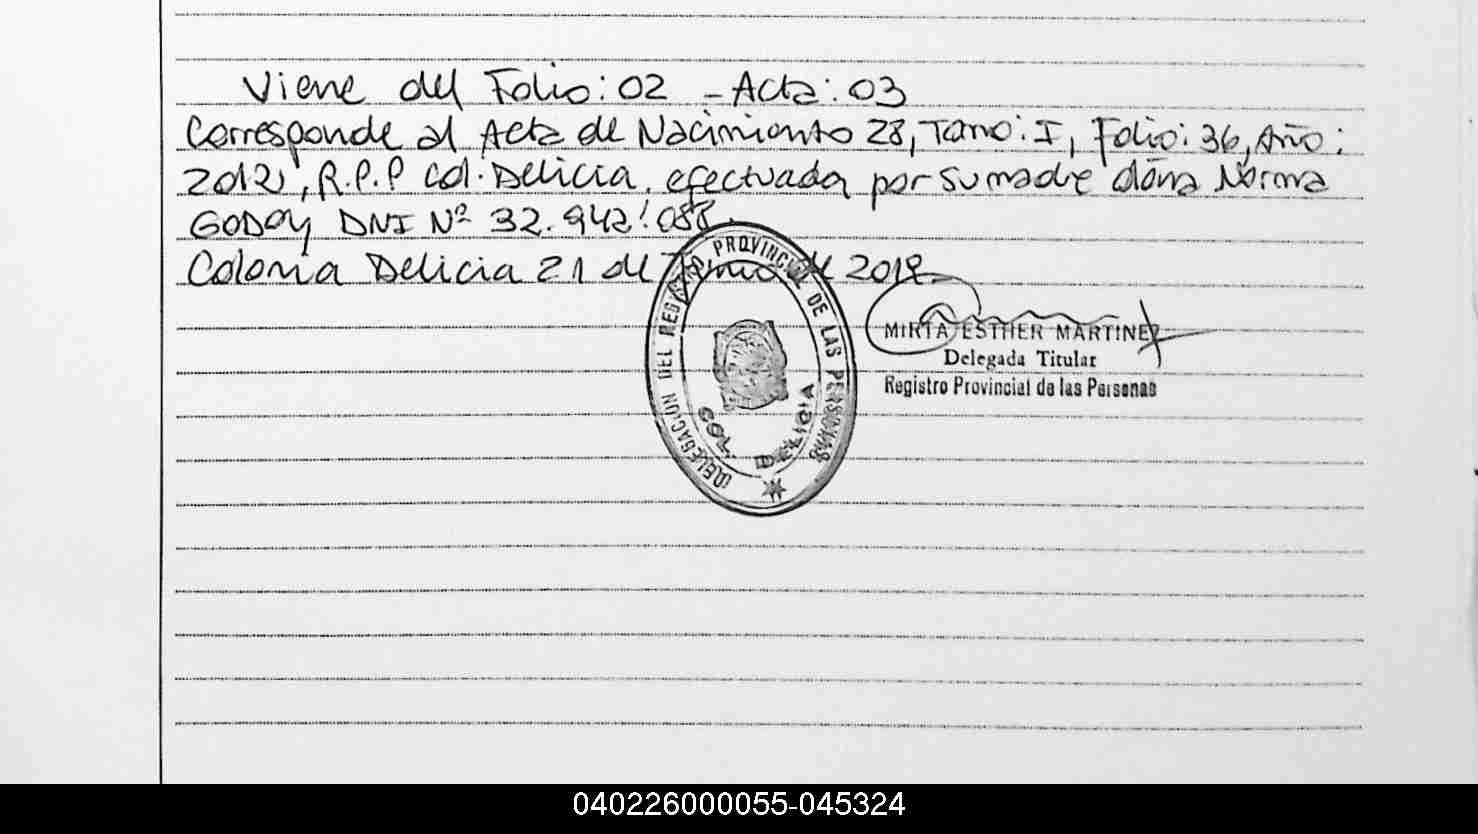 Viene del Folio: 02 - Acta: 03
Corresponde al Acta de Nacimiento 28, Tomo: I, Folio: 36, Año:
2012, R.P.P Col. Delicia, efectuada por su madre doña Norma
GODOY DNI Nº 32.942.088.
Colonia Delicia 21 de Junio de 2018
DELEGACION DEL REGISTRO PROVINCIAL DE LAS PERSONAS
COL. DELICIA
MIRTA ESTHER MARTINEZ
Delegada Titular
Registro Provincial de las Personas
040226000055-045324